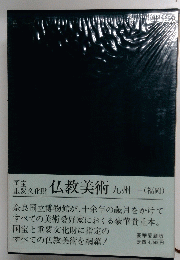 国宝
重要文化財 仏教美術 九州一(福岡)
奈良国立博物館が、十余年の歳月をかけて
すべての美術愛好家におくる豪華普及本。
国宝と重要文化財に指定の
すべての仏教美術を網羅!